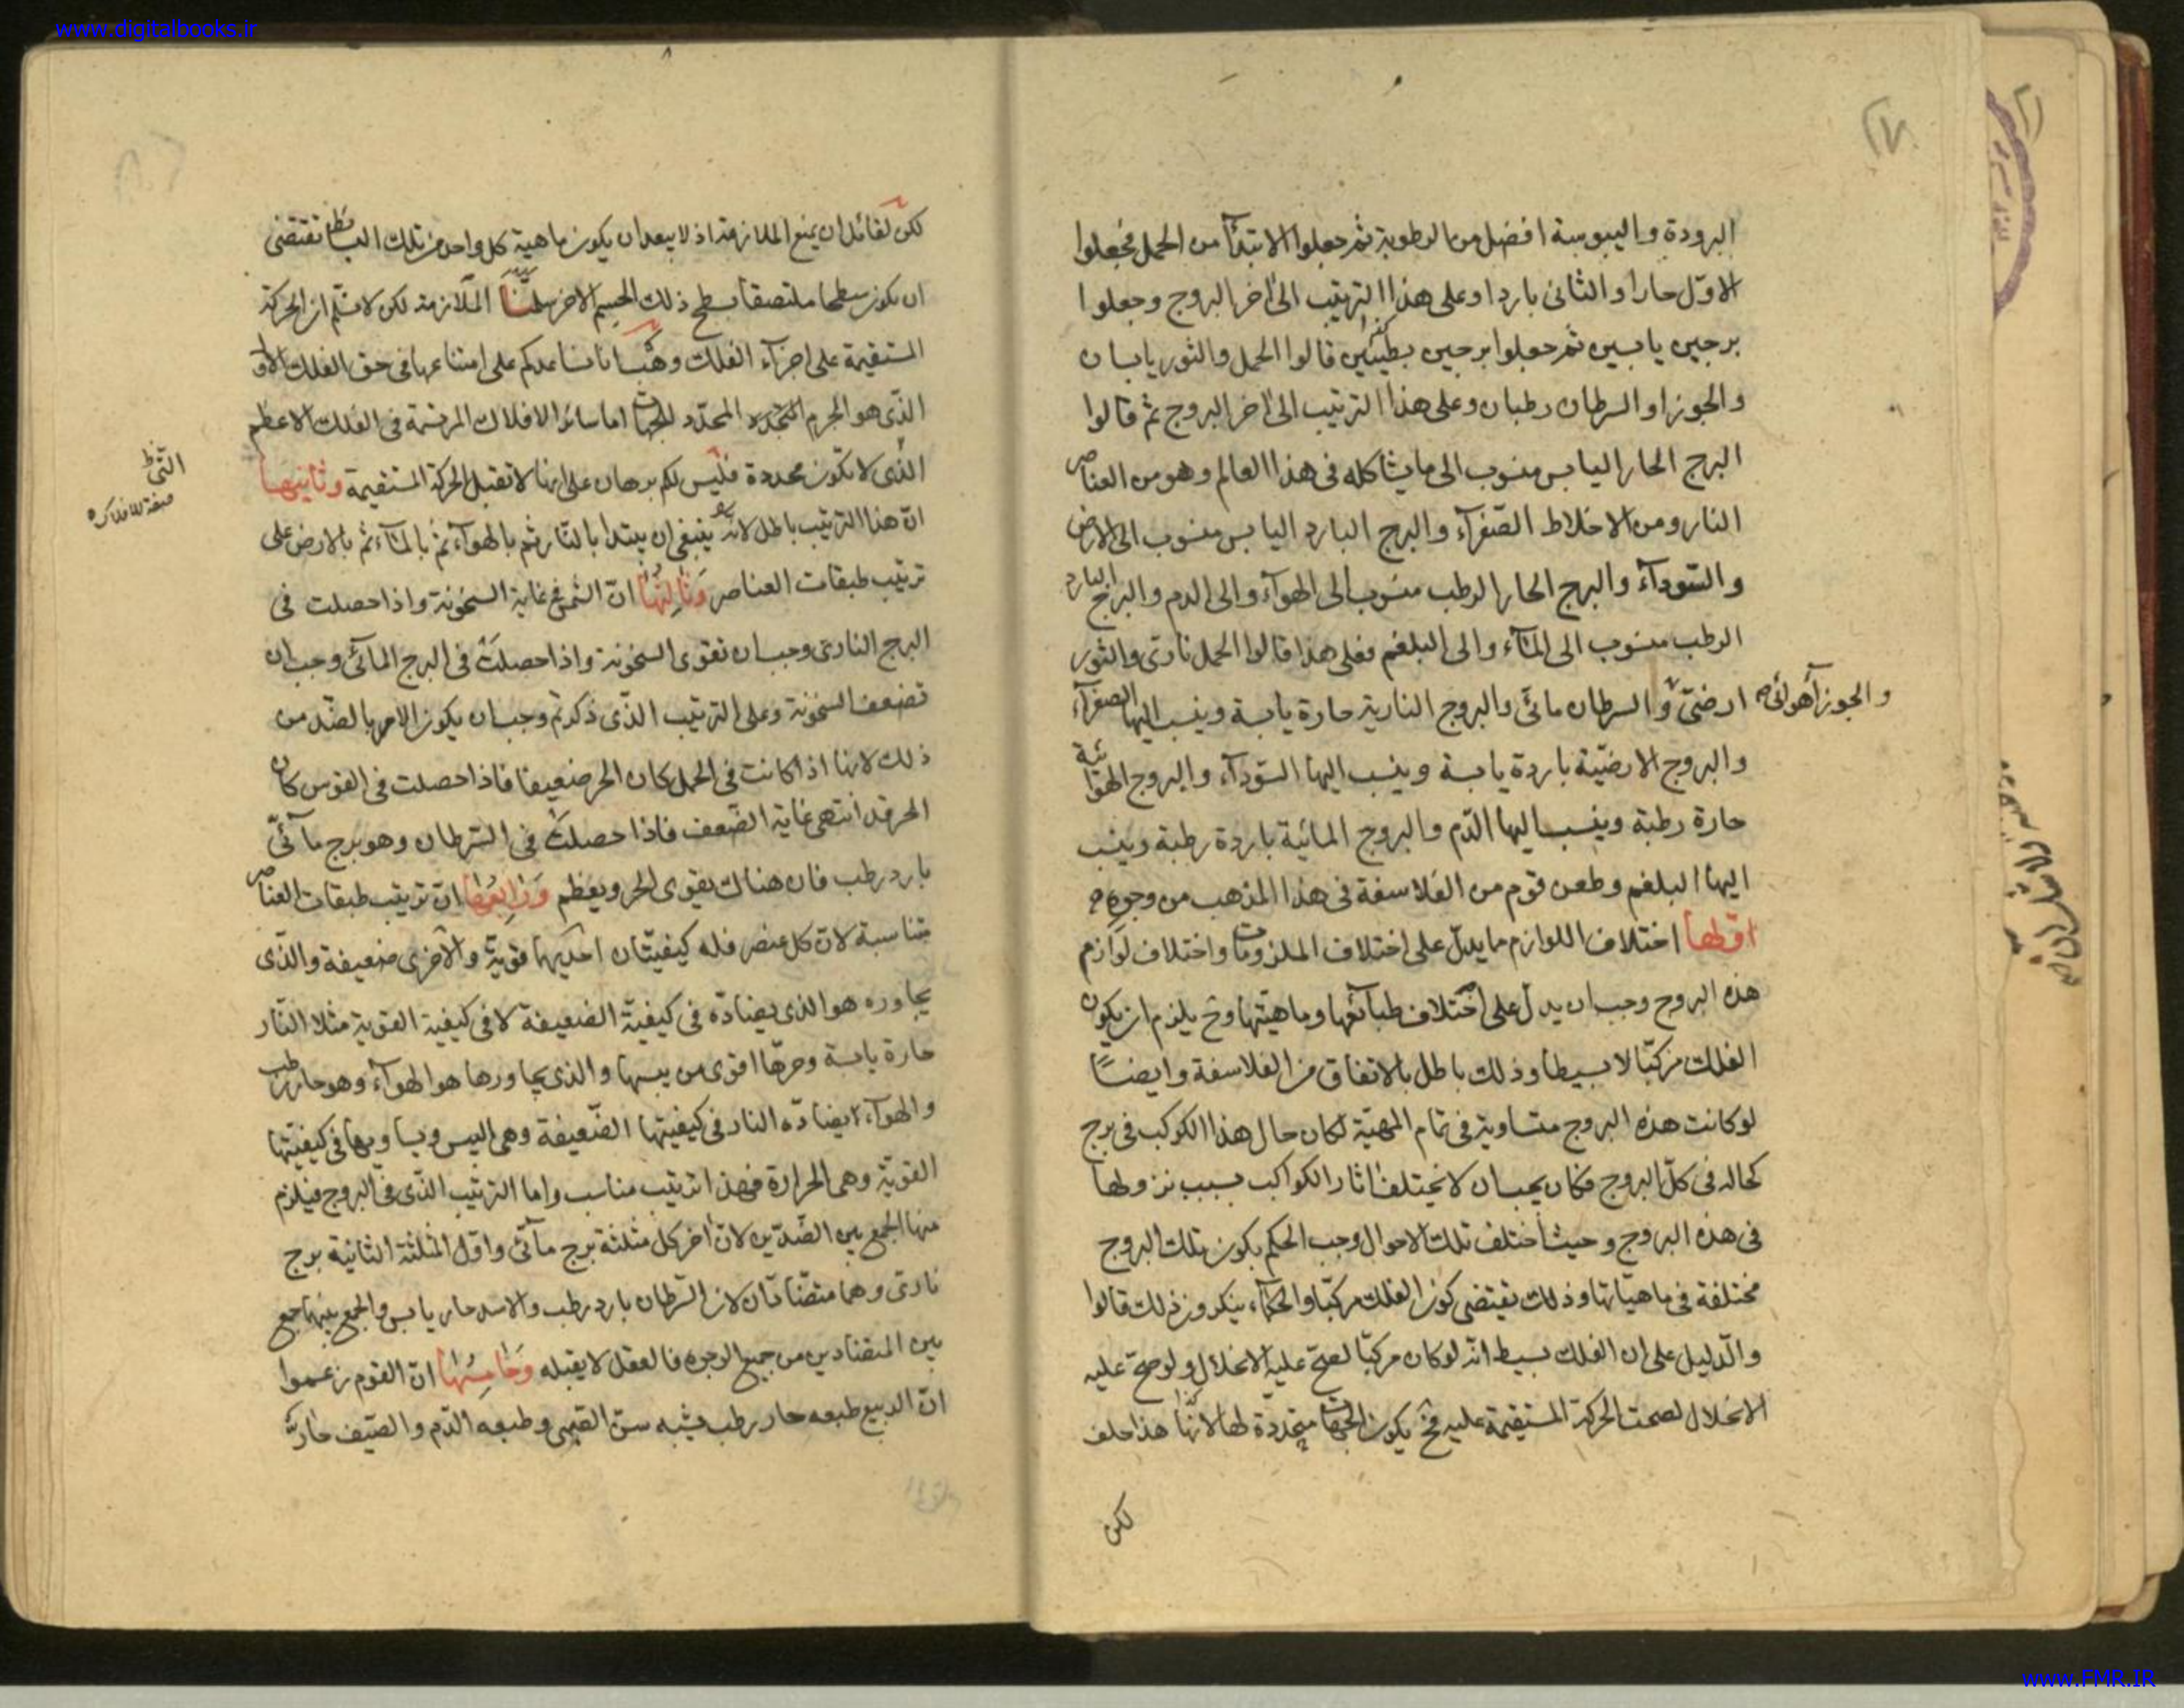 www.digitalbooks.ir
البرودة واليبوسة افضل من الرطوبة ثم جعلوا الابتدآ من الحمل فجعلوا
الاوّل حارا والثانى باردا وعلى هذا الترتيب الى اخر البروج وجعلوا
برجين يابسين ثم جعلوا برجين رطبين قالوا الحمل والثور يابسان
والجوزا والسرطان رطبان وعلى هذا الترتيب الى اخر البروج ثم قالوا
البرج الحار اليابس منسوب الى ما يشاكله فى هذا العالم وهو من العناصر
النار ومن الاخلاط الصّفرآء والبرج البارد اليابس منسوب الى الارض
والسّودآء والبرج الحار الرطب منسوب الى الهوآء والى الدم والبرج البارد
الرطب منسوب الى المآء والى البلغم فعلى هذا قالوا الحمل نارى والثور
ارضىّ والسرطان مائى والبروج النارية حارة يابسة وينسب اليها الصفرآء
والجوزآ هوائى صح
والبروج الارضيّة باردة يابسة وينسب اليها السّودآء والبروج الهوائية
حارة رطبة وينسب اليها الدّم والبروج المائية باردة رطبة وينسب
اليها البلغم وطعن قوم من الفلاسفة فى هذا المذهب من وجوه
اوّلها اختلاف اللوازم ما يدلّ على اختلاف الملزومات واختلاف لوازم
هذه البروج وجب ان يدل على اختلاف طبآئعها وماهيّتها وح يلزم ان يكون
الفلك مركبّا لا بسيطا وذلك باطل بالاتفاق من الفلاسفة وايضًا
لو كانت هذه البروج متساوية فى تمام المهيّة لكان حال هذا الكوكب فى برج
كحاله فى كلّ البروج فكان يجب ان لا يختلف اثار الكواكب بسبب نزولها
فى هذه البروج وحيث اختلف تلك الاحوال وجب الحكم بكون تلك البروج
مختلفة فى ماهيّاتها وذلك يقتضى كون الفلك مركبّا والحكمآء ينكرون ذلك قالوا
والدّليل على ان الفلك بسيط انّه لو كان مركبّا لصحّ عليه الانحلال ولو صحّ عليه
الانحلال لصحت الحركة المستقيمة عليه فح يكون الجهات متحددة لها لا بها هذا خلف
لكن
لكن لقائل ان يمنع الملازمة اذ لا يبعد ان يكون ماهية كل واحد من تلك البسائط تقتضى
ان يكون سطحها ملتصقا بسطح ذلك الجسم الاخر سلّمنا الملازمة لكن لا نسّلم ان الحركة
المستقيمة على اجزآء الفلك وهَب انا نساعدكم على امتناعها فى حق الفلك الاول
الذّى هو الجرم المحدّد للجهات اما سائر الافلاك المرتسمة فى الفلك الاعظم
الذّى لا تكون محددة فليس لكم برهان على انها لا تقبل الحركة المستقيمة وثانيها
انّ هذا الترتيب باطل لانّه ينبغى ان يبتدا بالنّار ثم بالهوآء ثم بالمآء ثم بالارض على
ترتيب طبقات العناصر وَثالِثُها انّ الشّمس فى غاية السخونة واذا حصلت فى
البرج النارى وجب ان تقوى السخونة واذا حصلَت فى البرج المآئى وجب ان
تضعف السخونة وعلى الترتيب الذّى ذكرتم وجب ان يكون الامر بالضّد من
ذلك لانها اذا كانت فى الحمل كان الحر ضعيفا فاذا حصلت فى القوس كان
الحر قد انتهى غاية الضّعف فاذا حصلت فى السّرطان وهو برج مآئىّ
بارد رطب فان هناك يقوى الحر ويعظم وَرابِعُها انّ ترتيب طبقات العناصر
متناسبة لانّ كل عنصر فله كيفيّتان احديهما قويّة والاخرى ضعيفة والذّى
يجاوره هو الذى يضادّه فى كيفيّة الضعيفة لا فى كيفية القوية مثلا النّار
حارة يابسة وحرّها اقوى من يبسها والذى يجاورها هو الهوآء وهو حار رطب
والهوآء يضادّه النار فى كيفيتها الضّعيفة وهى اليبس ويساويها فى كيفيّتها
القويّة وهى الحرارة فهذا ترتيب مناسب واما الترتيب الذّى فى البروج فيلزم
منها الجمع بين الضّدّين لانّ اخر كل مثلثة برج مآئى واوّل المثلثة الثانية برج
نارى وهما متضّادّان لان السّرطان بارد رطب والاسد حار يابس والجمع بينهما جمع
بين المتضادين من جميع الوجوه فالعقل لا يقبله وَخامِسُها انّ القوم زعموا
انّ الربيع طبعه حار رطب يشبه سنّ الصّبى وطبعه الدّم والصّيف حار
www.FMR.IR